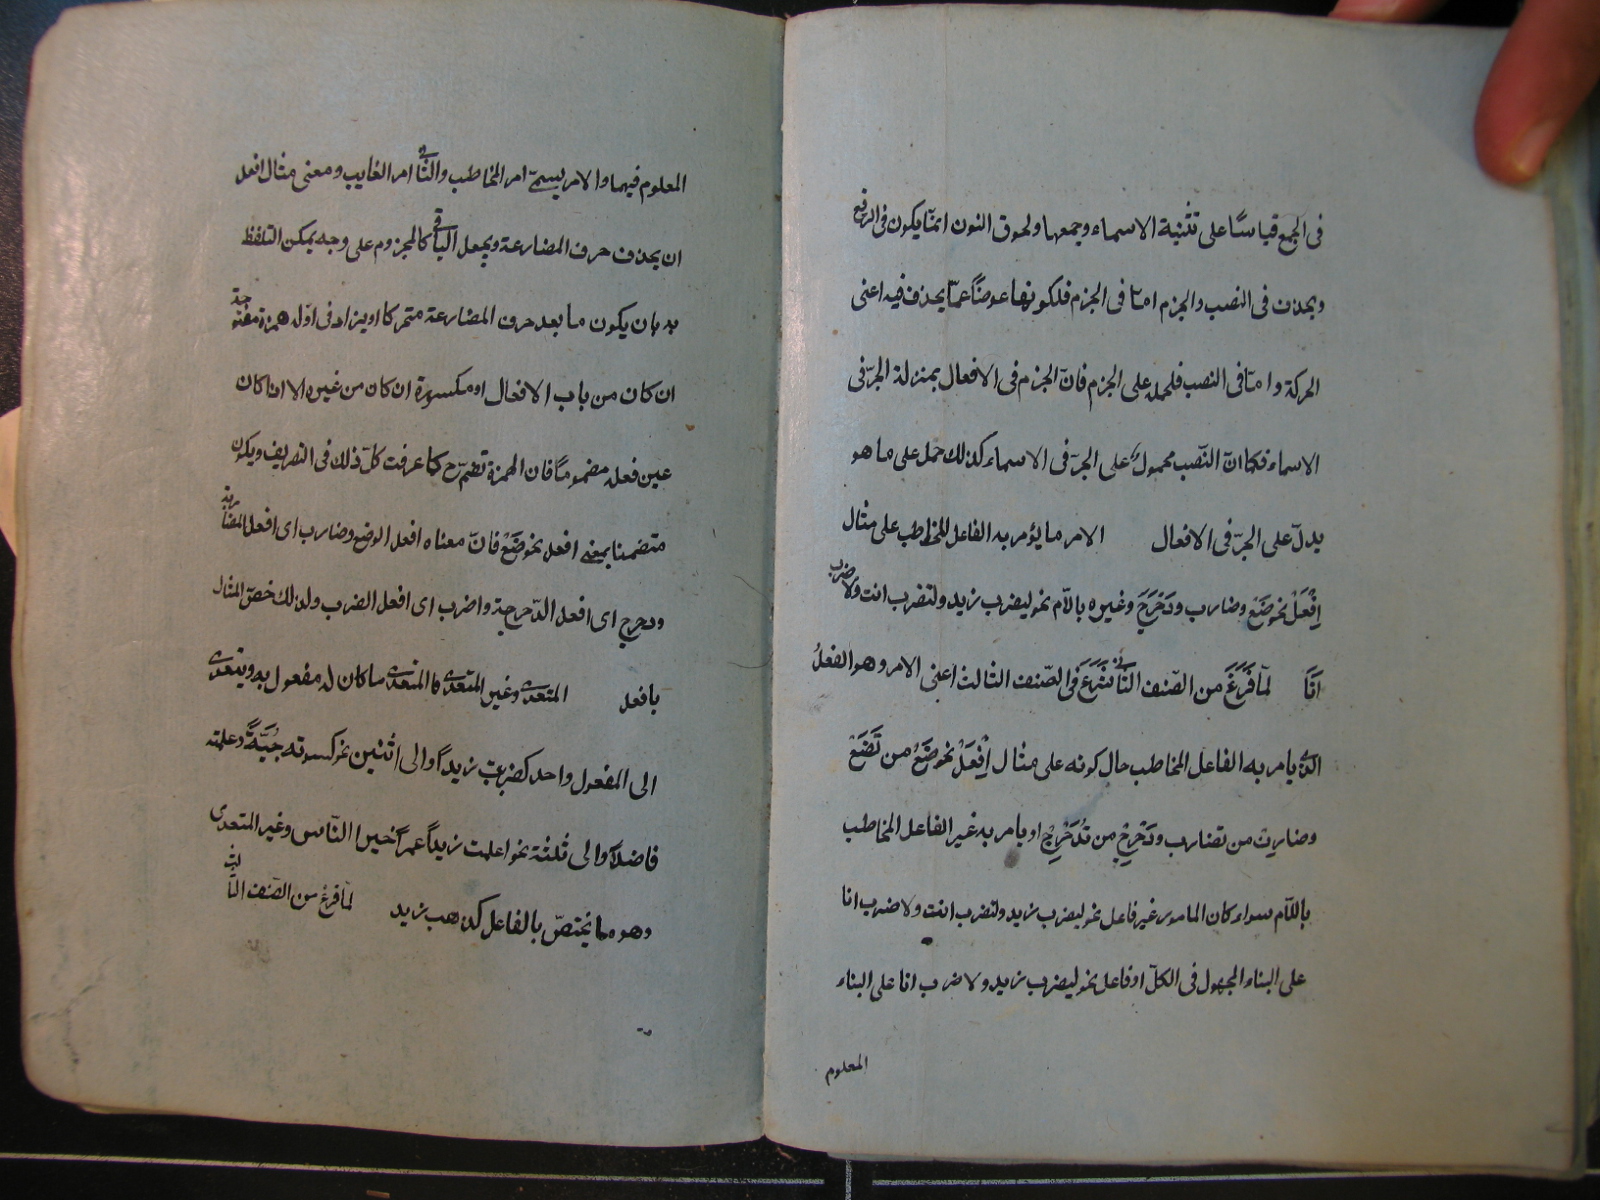 فى الجمع قياسًا على تثنية الاسماء وجمعها ولحوق النون انمّا يكون فى الرفع
ويحذف فى النصب والجزم امّا فى الجزم فلكونها عوضًا عمّا يحذف فيه اعنى
الحركة وامّا فى النصب فلحمله على الجزم فانّ الجزم فى الافعال بمنزلة الجرّ فى
الاسماء فكما انّ النصب محمول على الجرّ فى الاسماء كذلك حمل على ما هو
يدلّ على الجرّ فى الافعال الامر ما يؤمر به الفاعل المخاطب على مثال
اِفْعَلْ نحو ضَعْ وضارب ودَحْرِجْ وغيره باللّام نحو ليضرب زيد ولتضرب انت ولاضرب
انَا لمّا فَرَغَ من الصّنف الثانى شَرَعَ فى الصّنف الثالث اعنى الامر وهو الفعلُ
الذى يامر به الفاعل المخاطب حال كونه على مثال اِفْعَلْ نحو ضَعْ من تَضَعْ
وضارب من تضارب ودَحْرِجْ من تُدَحْرِجُ او يامر به غير الفاعل المخاطب
باللّام سواء كان المامور غير فاعل نحو ليضرب زيد ولتضرب انت ولاضرب انا
على البناء المجهول فى الكلّ او فاعل نحو ليضرب زيد ولاضرب انا على البناء
المعلوم
المعلوم فيهما والامر يسمّى امر المخاطب والثانى امر الغايب ومعنى مثال افعل
ان يحذف حرف المضارعة ويجعل الباقى كالمجزوم على وجه يمكن التلفظ
به بان يكون ما بعد حرف المضارعة متحركا او يزاد فى اوّله همزة مفتوحة
ان كان من باب الافعال او مكسورة ان كان من غيره الا اذا كان
عين فعله مضمومًا فان الهمزة تضمّ ح كما عرفت كلّ ذلك فى التصريف ويكون
متضمنا بمعنى افعل نحو ضَعْ فانّ معناه افعل الوضع وضارب اى افعل المضاربة
ودحرج اى افعل الدّحرجة واضرب اى افعل الضرب ولذلك خصّ المثال
بافعل المتعدى وغير المتعدى فالمتعدى ما كان له مفعول به ويتعدى
الى المفعول واحد كضربت زيدًا والى اثنين نحو كسوته جُبَّةً وعلمته
فاضلًا والى ثلثة نحو اعلمت زيدًا عمرًا خير الناس وغير المتعدى
وهو ما يختصّ بالفاعل كذهب زيد لمّا فرغ من الصّنف الثالث